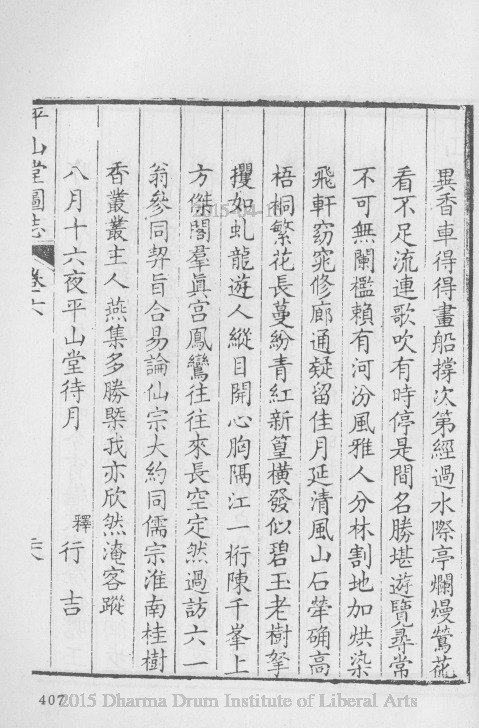 異香車得得畫船撐次第經過水際亭爛熳鶯花
看不足流連歌吹有時停是間名勝堪遊覽尋常
不可無闌檻賴有河汾風雅人分林割地加烘染
飛軒窈窕修廊通疑留佳月延清風山石犖确高
梧桐繁花長蔓紛青紅新篁橫發似碧玉老樹拏
攫如虬龍遊人縱目開心胸隔江一桁陳千峯上
方傑閣羣真宮鳳鸞往往來長空定然過訪六一
翁參同契旨合易論仙宗大約同儒宗淮南桂樹
香叢叢主人燕集多勝槩我亦欣然淹客蹤
八月十六夜平山堂待月 釋行吉
平山堂圖志 卷六
407
2015 Dharma Drum Institute of Liberal Arts